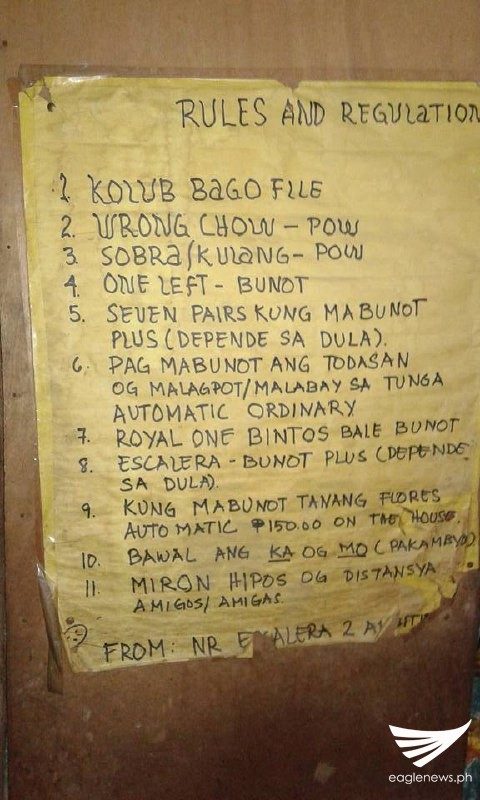 RULES AND REGULATION
1. KOLUB BAGO FILE
2. WRONG CHOW - POW
3. SOBRA/KULANG - POW
4. ONE LEFT - BUNOT
5. SEVEN PAIRS KUNG MABUNOT
PLUS (DEPENDE SA DULA).
6. PAG MABUNOT ANG TODASAN
OG MALAGPOT/MALABAY SA TUNGA
AUTOMATIC ORDINARY
7. ROYAL ONE BINTOS BALE BUNOT
8. ESCALERA - BUNOT PLUS (DEPENDE
SA DULA).
9. KUNG MABUNOT TANANG FLORES
AUTOMATIC ₱150.00 ON THE HOUSE.
10. BAWAL ANG KA OG MO (PAKAMBYO)
11. MIRON HIPOS OG DISTANSYA
AMIGOS/AMIGAS.
FROM: NR 2
eaglenews.ph